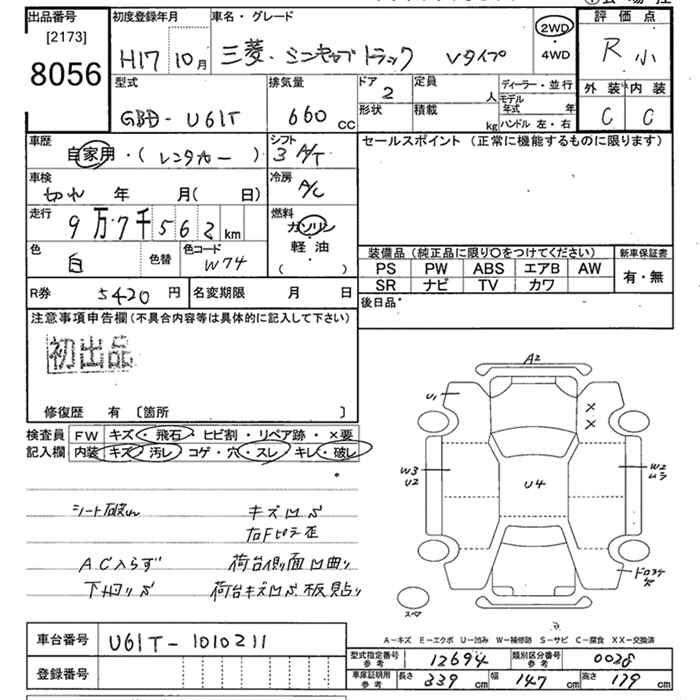 出品番号
[2173]
8056
初度登録年月
H17 10月
車名・グレード
三菱・ミニキャブトラック Vタイプ
2WD
・
4WD
評価点
R 小
外装 内装
C C
型式
GBD-U61T
排気量
660 cc
ドア
2
定員
人
形状
積載
kg
ディーラー・並行
モデル年式 年
ハンドル 左・右
車歴
自家用・(レンタカー)
シフト
3 A/T
車検
切れ 年 月( 日)
冷房
A/C
走行
9万7千562km
燃料
ガソリン
軽・油
( )
色
白
色替
色コード
W74
セールスポイント(正常に機能するものに限ります)
装備品(純正品に限り〇をつけてください)
PS PW ABS エアB AW
SR ナビ TV カワ
新車保証書
有・無
後日品
R券 5420円
名変期限 月 日
注意事項申告欄(不具合内容等は具体的に記入して下さい)
初出品
修復歴 有〔箇所 〕
検査員
記入欄
FW キズ・飛石・ヒビ割・リペア跡・×要
内装 キズ・汚レ・コゲ・穴・スレ・キレ・破レ
シート破れ キズ凹み
右Fピラ歪
AC入らず 荷台側面凹曲り
下廻りサビ 荷台キズ凹み板貼り
A2
U1
×
×
W3
U2
U4
W2
ムラ
スペア
A-キズ E-エクボ U-凹み W-補修跡 S-サビ C-腐食 XX-交換済
車台番号 U61T-1010211
登録番号
型式指定番号
参考
12694
類別区分番号
参考
0028
車庫証明用
参考
長さ 339cm
幅 147cm
高さ 179cm